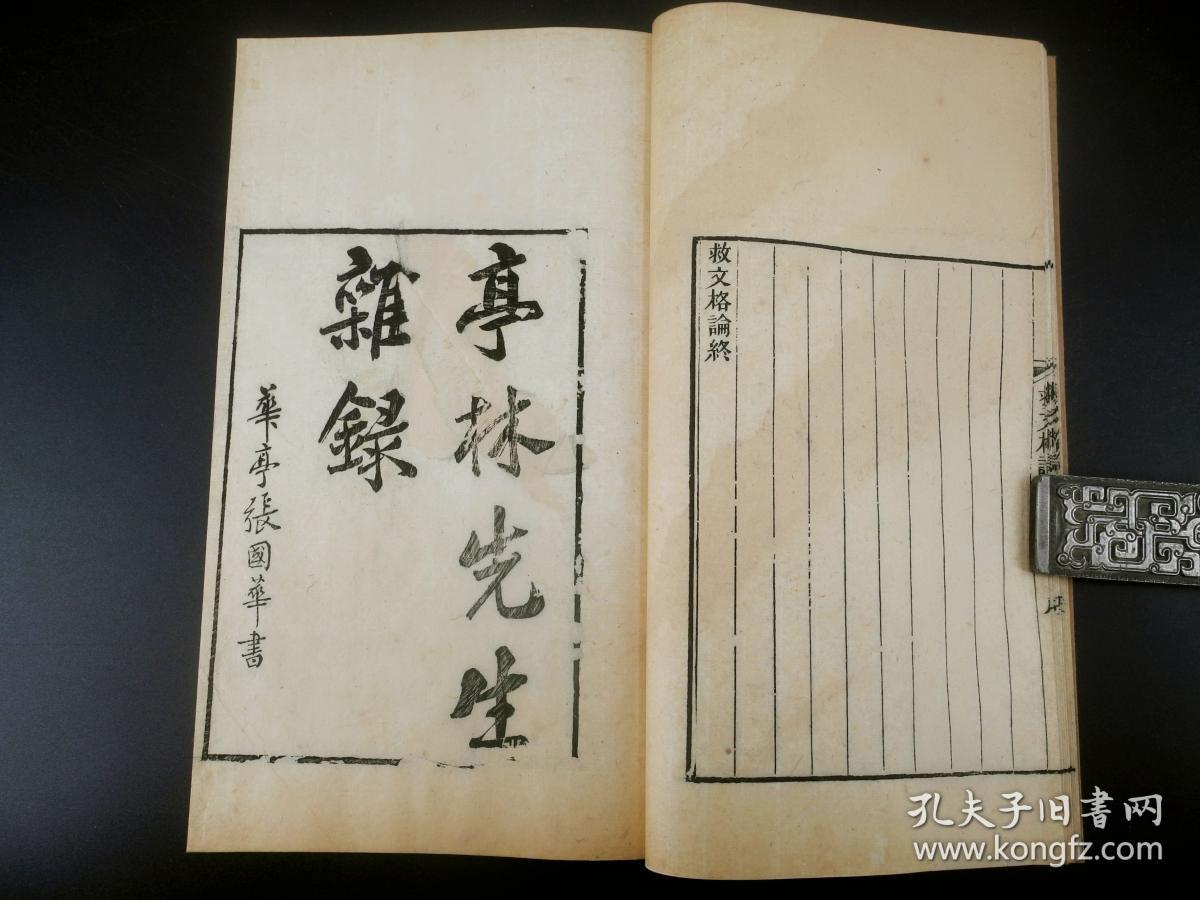 救文格論終
救文格論
亭林先生
雜録
華亭張國華書
孔夫子旧書网
www.kongfz.com